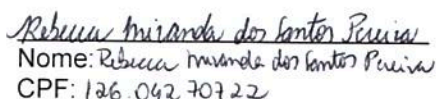 Rebecca Miranda dos Santos Pereira
Nome: Rebecca Miranda dos Santos Pereira
CPF: 126.042 707 22